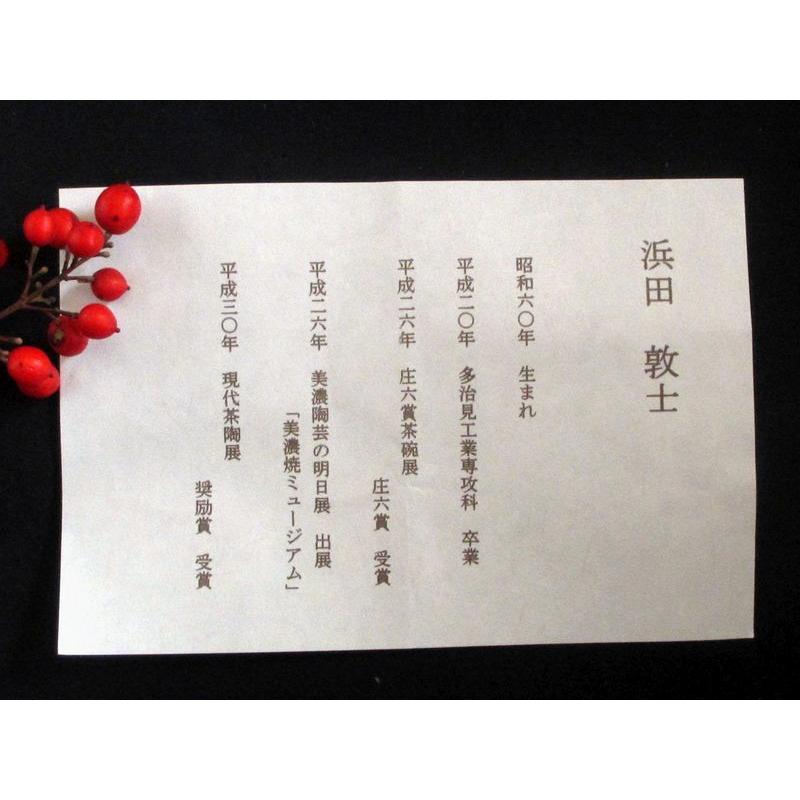 浜田　敦士
昭和六〇年　生まれ
平成二〇年　多治見工業専攻科　卒業
平成二六年　庄六賞茶碗展
庄六賞　受賞
平成二六年　美濃陶芸の明日展　出展
「美濃焼ミュージアム」
平成三〇年　現代茶陶展
奨励賞　受賞